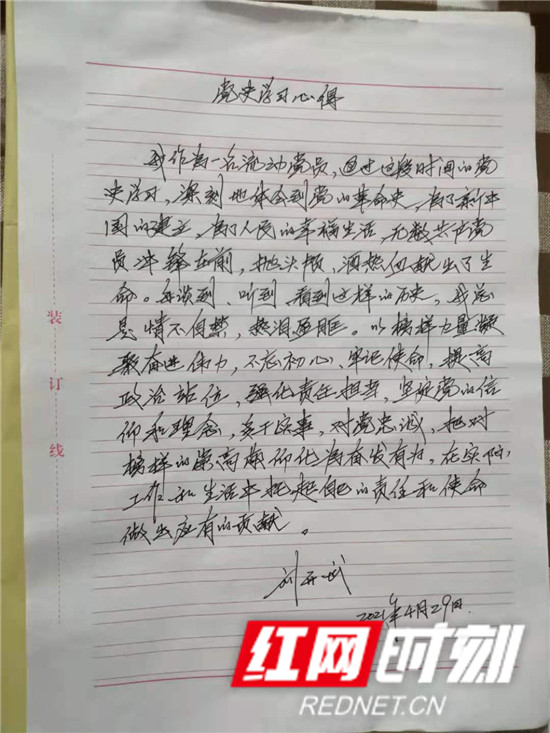 党史学习心得
我作为一名流动党员，通过这段时间的党
史学习，深刻地体会到党的革命史，为了新中
国的建立，为了人民的幸福生活，无数共产党
员冲锋在前，抛头颅、洒热血献出了生
命。每谈到、听到、看到这样的历史，我总
是情不自禁，热泪盈眶。以榜样力量凝
聚奋进伟力，不忘初心、牢记使命，提高
政治站位，强化责任担当，坚定党的信
仰和理念，多干实事，对党忠诚，把对
榜样的崇高敬仰化为奋发有为，在实际
工作和生活中担起自己的责任和使命
做出应有的贡献。
2021年4月29日
装
订
线
红网时刻
REDNET.CN